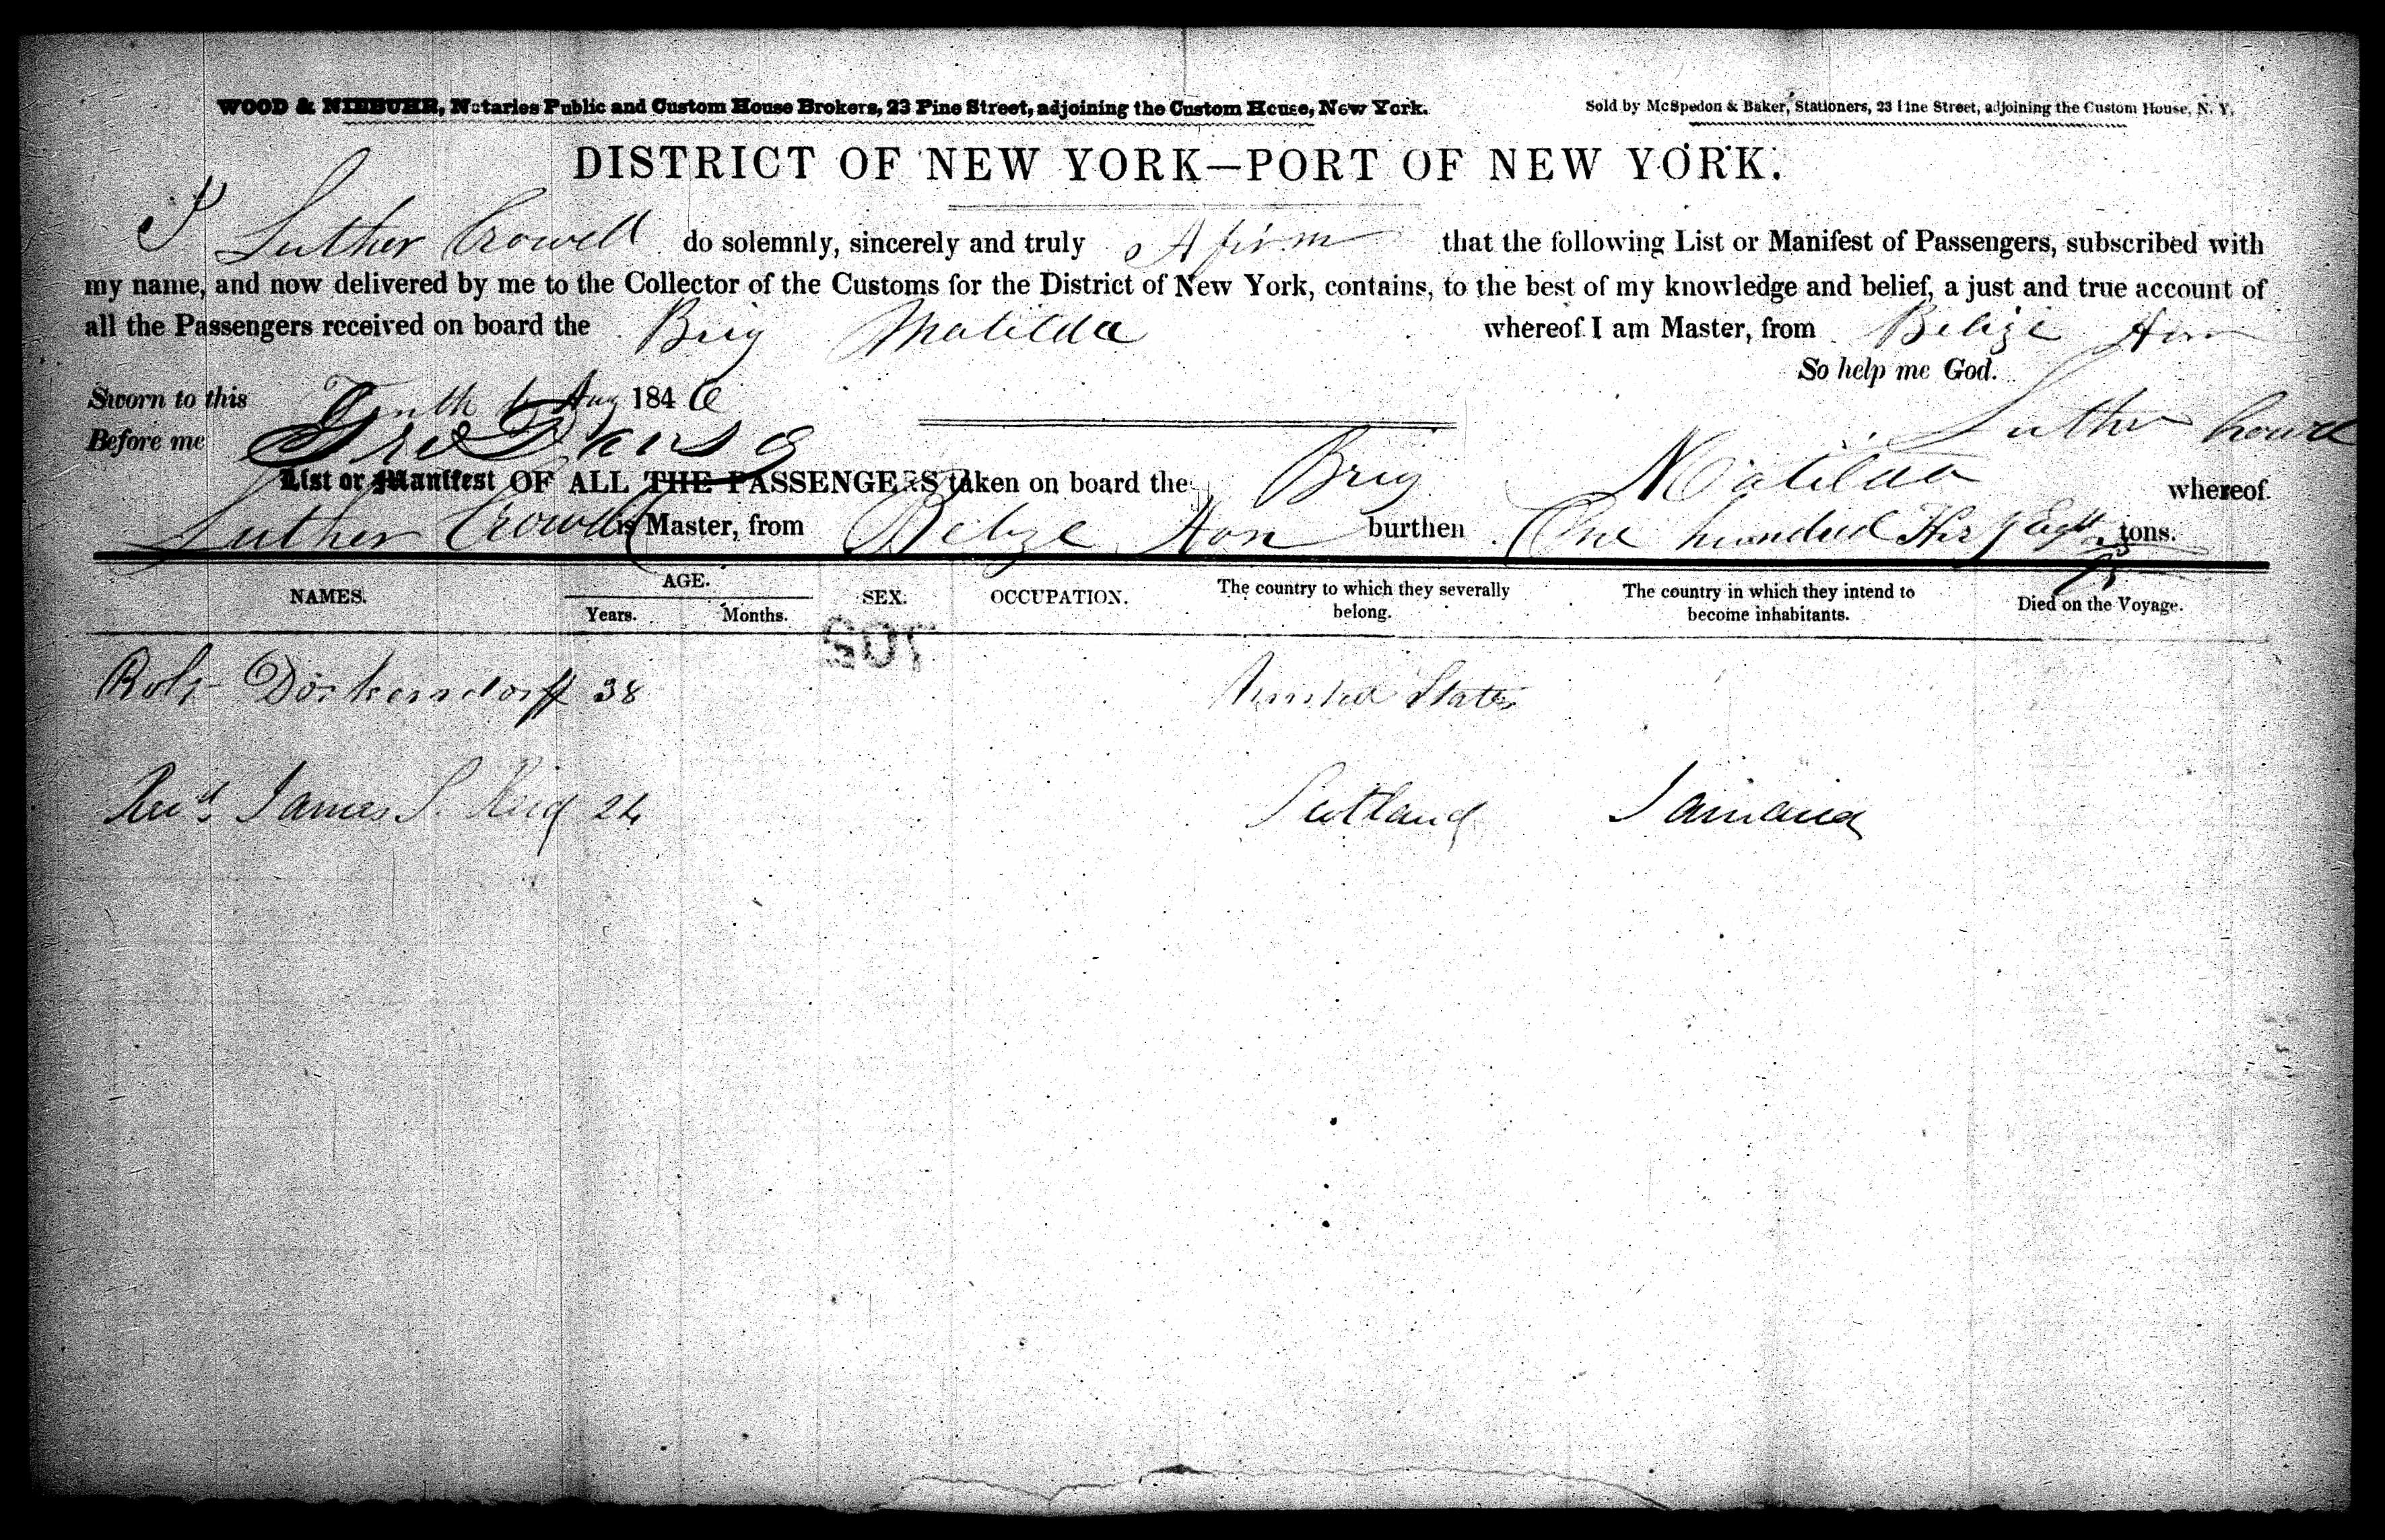 WOOD & NIEBUHR, Notaries Public and Custom House Brokers, 23 Pine Street, adjoining the Custom House, New York.
Sold by McSpedon & Baker, Stationers, 23 Pine Street, adjoining the Custom House, N. Y.
DISTRICT OF NEW YORK—PORT OF NEW YORK.
I Luther Crowell do solemnly, sincerely and truly Afirm that the following List or Manifest of Passengers, subscribed with
my name, and now delivered by me to the Collector of the Customs for the District of New York, contains, to the best of my knowledge and belief, a just and true account of
all the Passengers received on board the Brig Matilda whereof I am Master, from Belize Hon
So help me God.
Sworn to this Tenth Aug 1846
Luther Crowell
Before me
List or Manifest OF ALL THE PASSENGERS taken on board the Brig Matilda whereof
Luther Crowell is Master, from Belize Hon burthen One hundred tons.
NAMES. AGE. Years. Months. SEX. OCCUPATION. The country to which they severally belong. The country in which they intend to become inhabitants. Died on the Voyage.
702
38 United States
Revd James S. 24 Scotland Jamaica